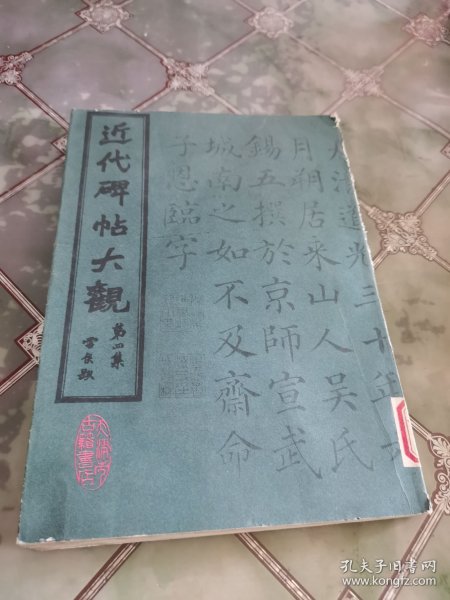 近代碑帖大觀
第四集
大清道光三十年正
月朔居米山人吳氏
錫五撰於京師宣武
城南之如不及齋命
子恩臨字
天津市
古籍書店
孔夫子旧书网
www.kongfz.com